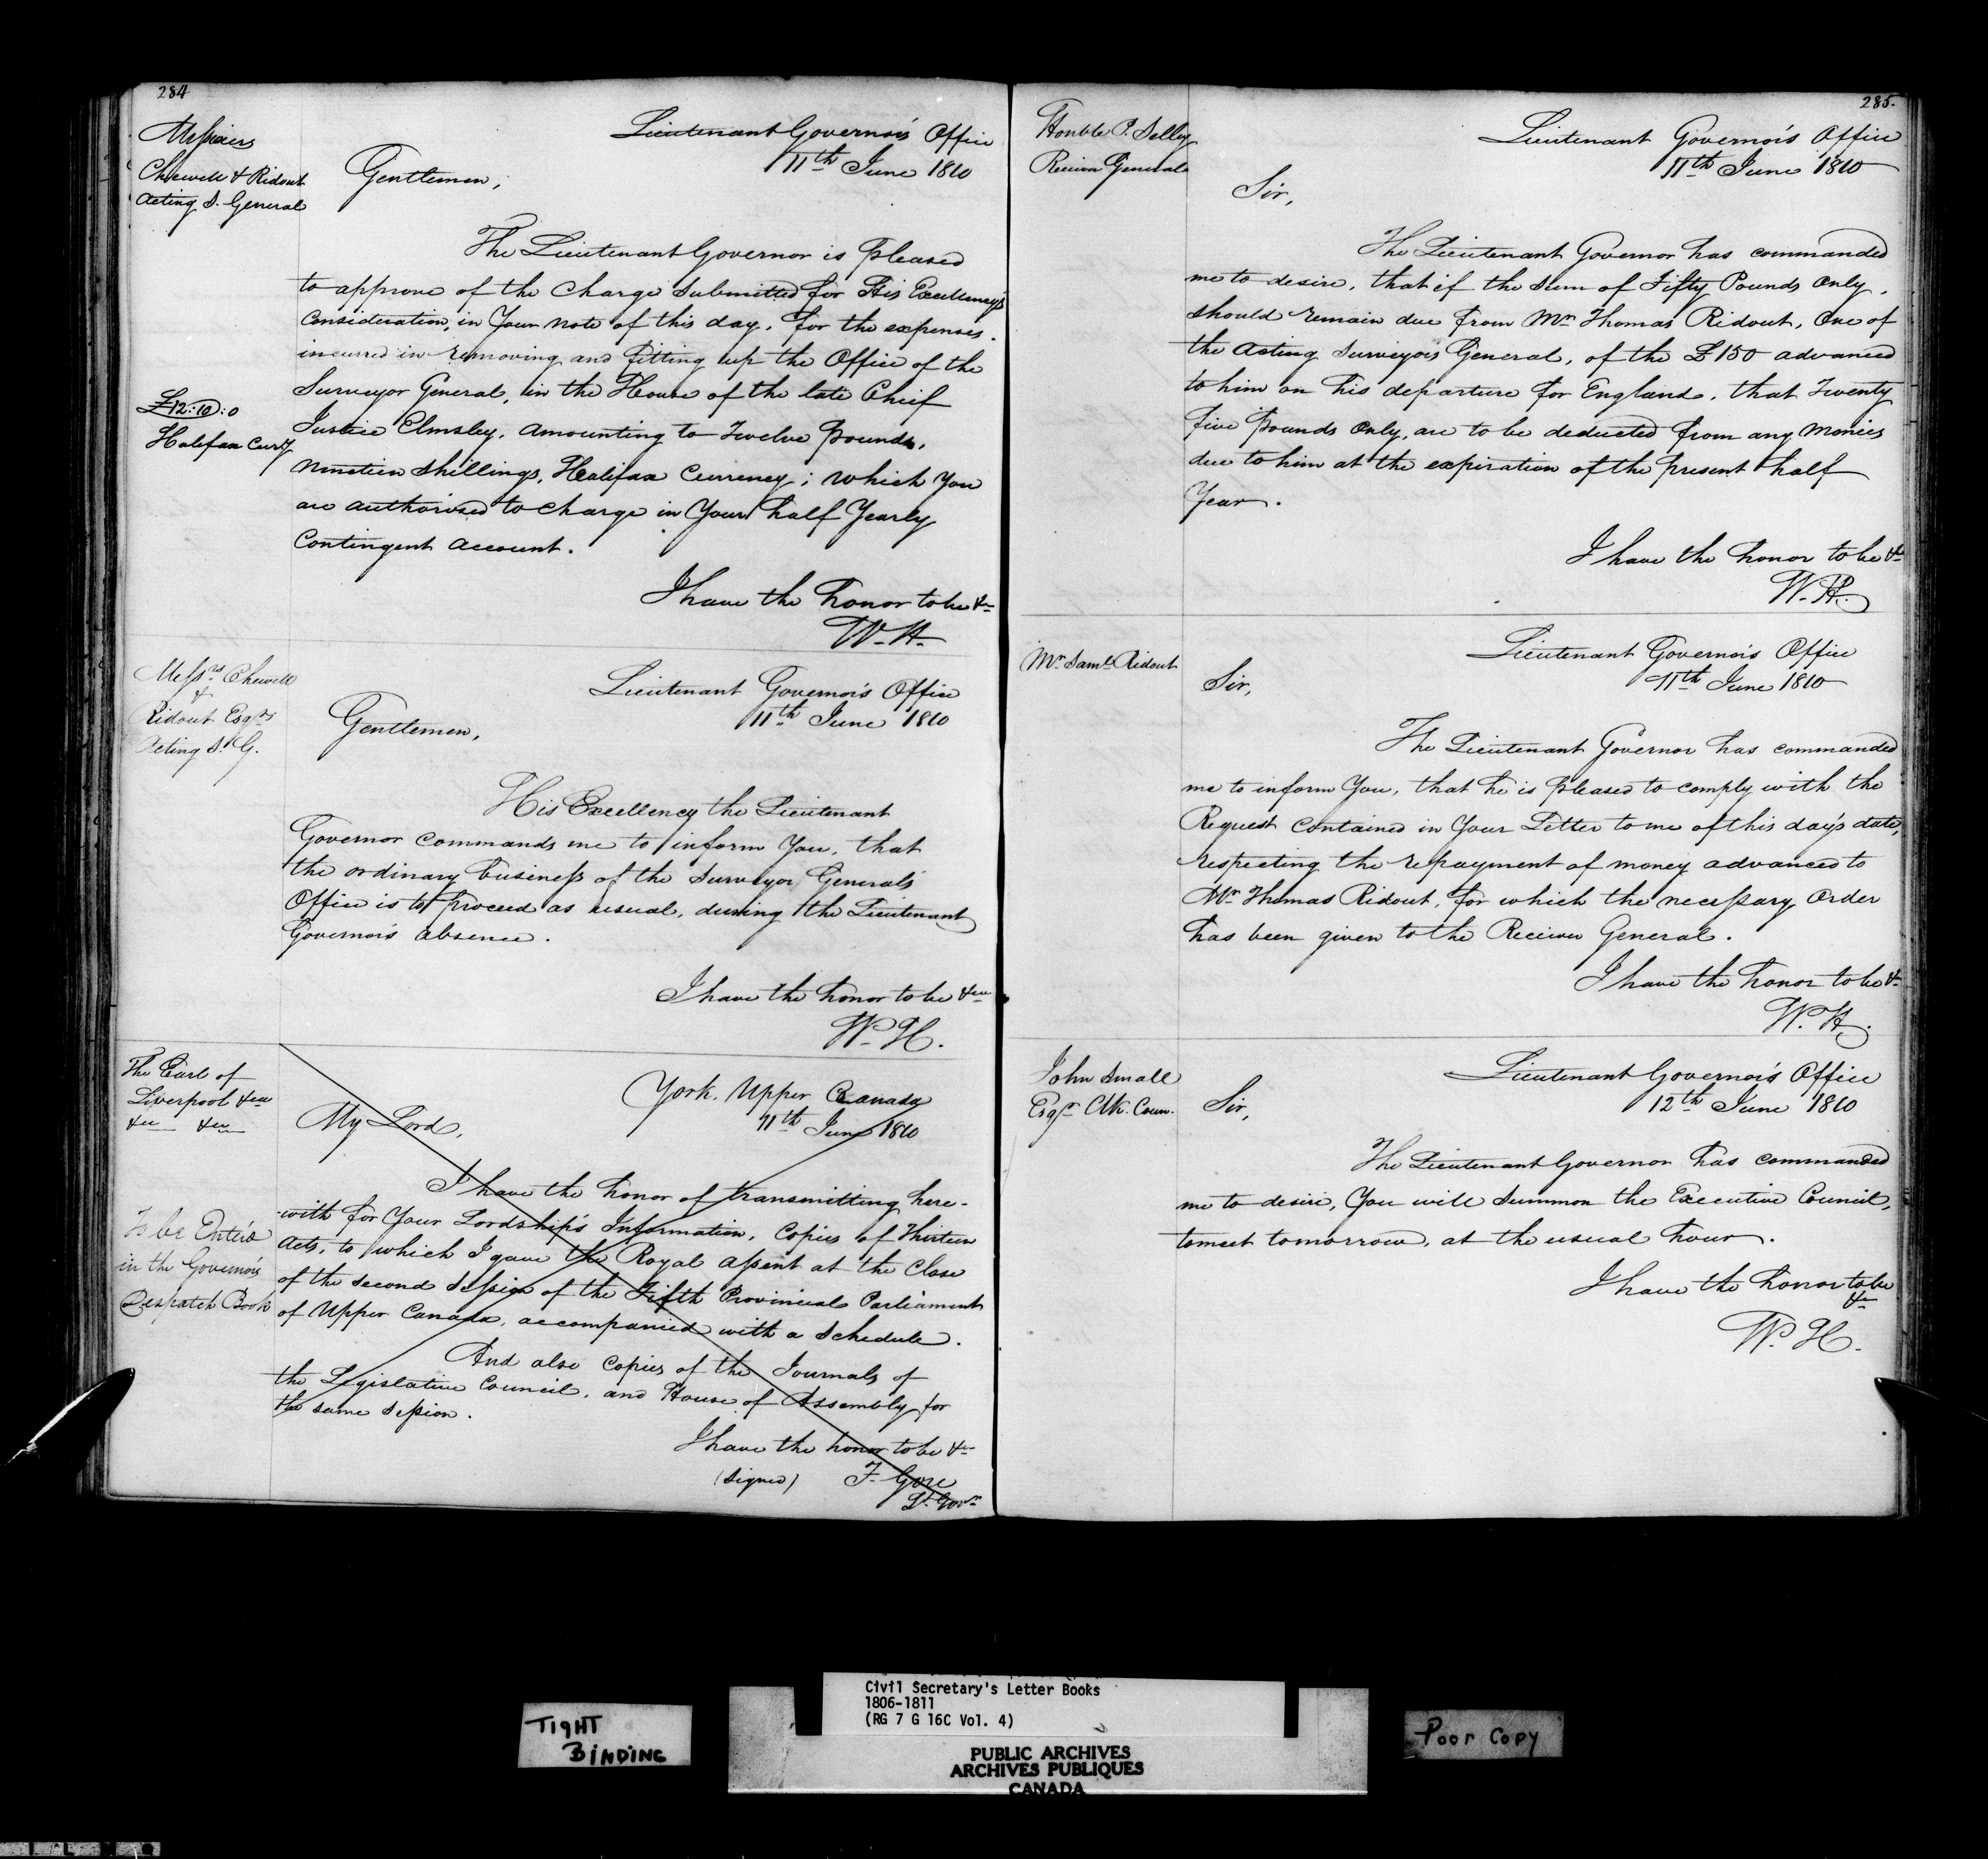 284
Messieurs
Chewett & Ridout
Acting S. General
Lieutenant Governor's Office
11th June 1810
Gentlemen,
The Lieutenant Governor is pleased
to approve of the Charge submitted for His Excellency's
Consideration, in Your note of this day, for the expenses
incurred in removing and fitting up the Office of the
Surveyor General, in the House of the late Chief
Justice Elmsley, amounting to Twelve pounds,
Nineteen shillings, Halifax Currency; which You
are authorised to charge in Your half Yearly
Contingent Account.
£12:19:0
Halifax Curry
I have the honor to be &c
W. H.
Messrs Chewett
&
Ridout Esqrs
Acting S. G.
Lieutenant Governor's Office
11th June 1810
Gentlemen,
His Excellency the Lieutenant
Governor commands me to inform You, that
the ordinary business of the Surveyor General's
Office is to proceed as usual, during the Lieutenant
Governor's absence.
I have the honor to be &c
W. H.
The Earl of
Liverpool &c
&c &c
York, Upper Canada
11th June 1810
My Lord,
I have the honor of transmitting here-
with for Your Lordship's Information, Copies of Thirteen
Acts, to which I gave the Royal Assent at the Close
of the second Session of the Fifth Provincial Parliament
of Upper Canada, accompanied with a Schedule.
And also Copies of the Journals of
the Legislative Council, and House of Assembly for
the same Session.
To be Enter'd
in the Governor's
Despatch Book
I have the honor to be &c
(Signed) F. Gore
Lt. Govr
285.
Honble P. Selby
Receiver General
Lieutenant Governor's Office
11th June 1810
Sir,
The Lieutenant Governor has commanded
me to desire, that if the sum of Fifty Pounds only,
should remain due from Mr Thomas Ridout, One of
the Acting Surveyors General, of the £150 advanced
to him on his departure for England, that Twenty
five Pounds only, are to be deducted from any Monies
due to him at the expiration of the present half
Year.
I have the honor to be &c
W. H.
Mr Saml Ridout
Lieutenant Governor's Office
11th June 1810
Sir,
The Lieutenant Governor has commanded
me to inform You, that he is pleased to comply with the
Request contained in Your Letter to me of this day's date,
respecting the repayment of money advanced to
Mr Thomas Ridout, for which the necessary Order
has been given to the Receiver General.
I have the honor to be &c
W. H.
John Small
Esqr Clk. Coun.
Lieutenant Governor's Office
12th June 1810
Sir,
The Lieutenant Governor has commanded
me to desire, You will summon the Executive Council,
to meet tomorrow, at the usual hour.
I have the honor to be
&c
W. H.
TIGHT
BINDING
Civil Secretary's Letter Books
1806-1811
(RG 7 G 16C Vol. 4)
PUBLIC ARCHIVES
ARCHIVES PUBLIQUES
CANADA
Poor Copy